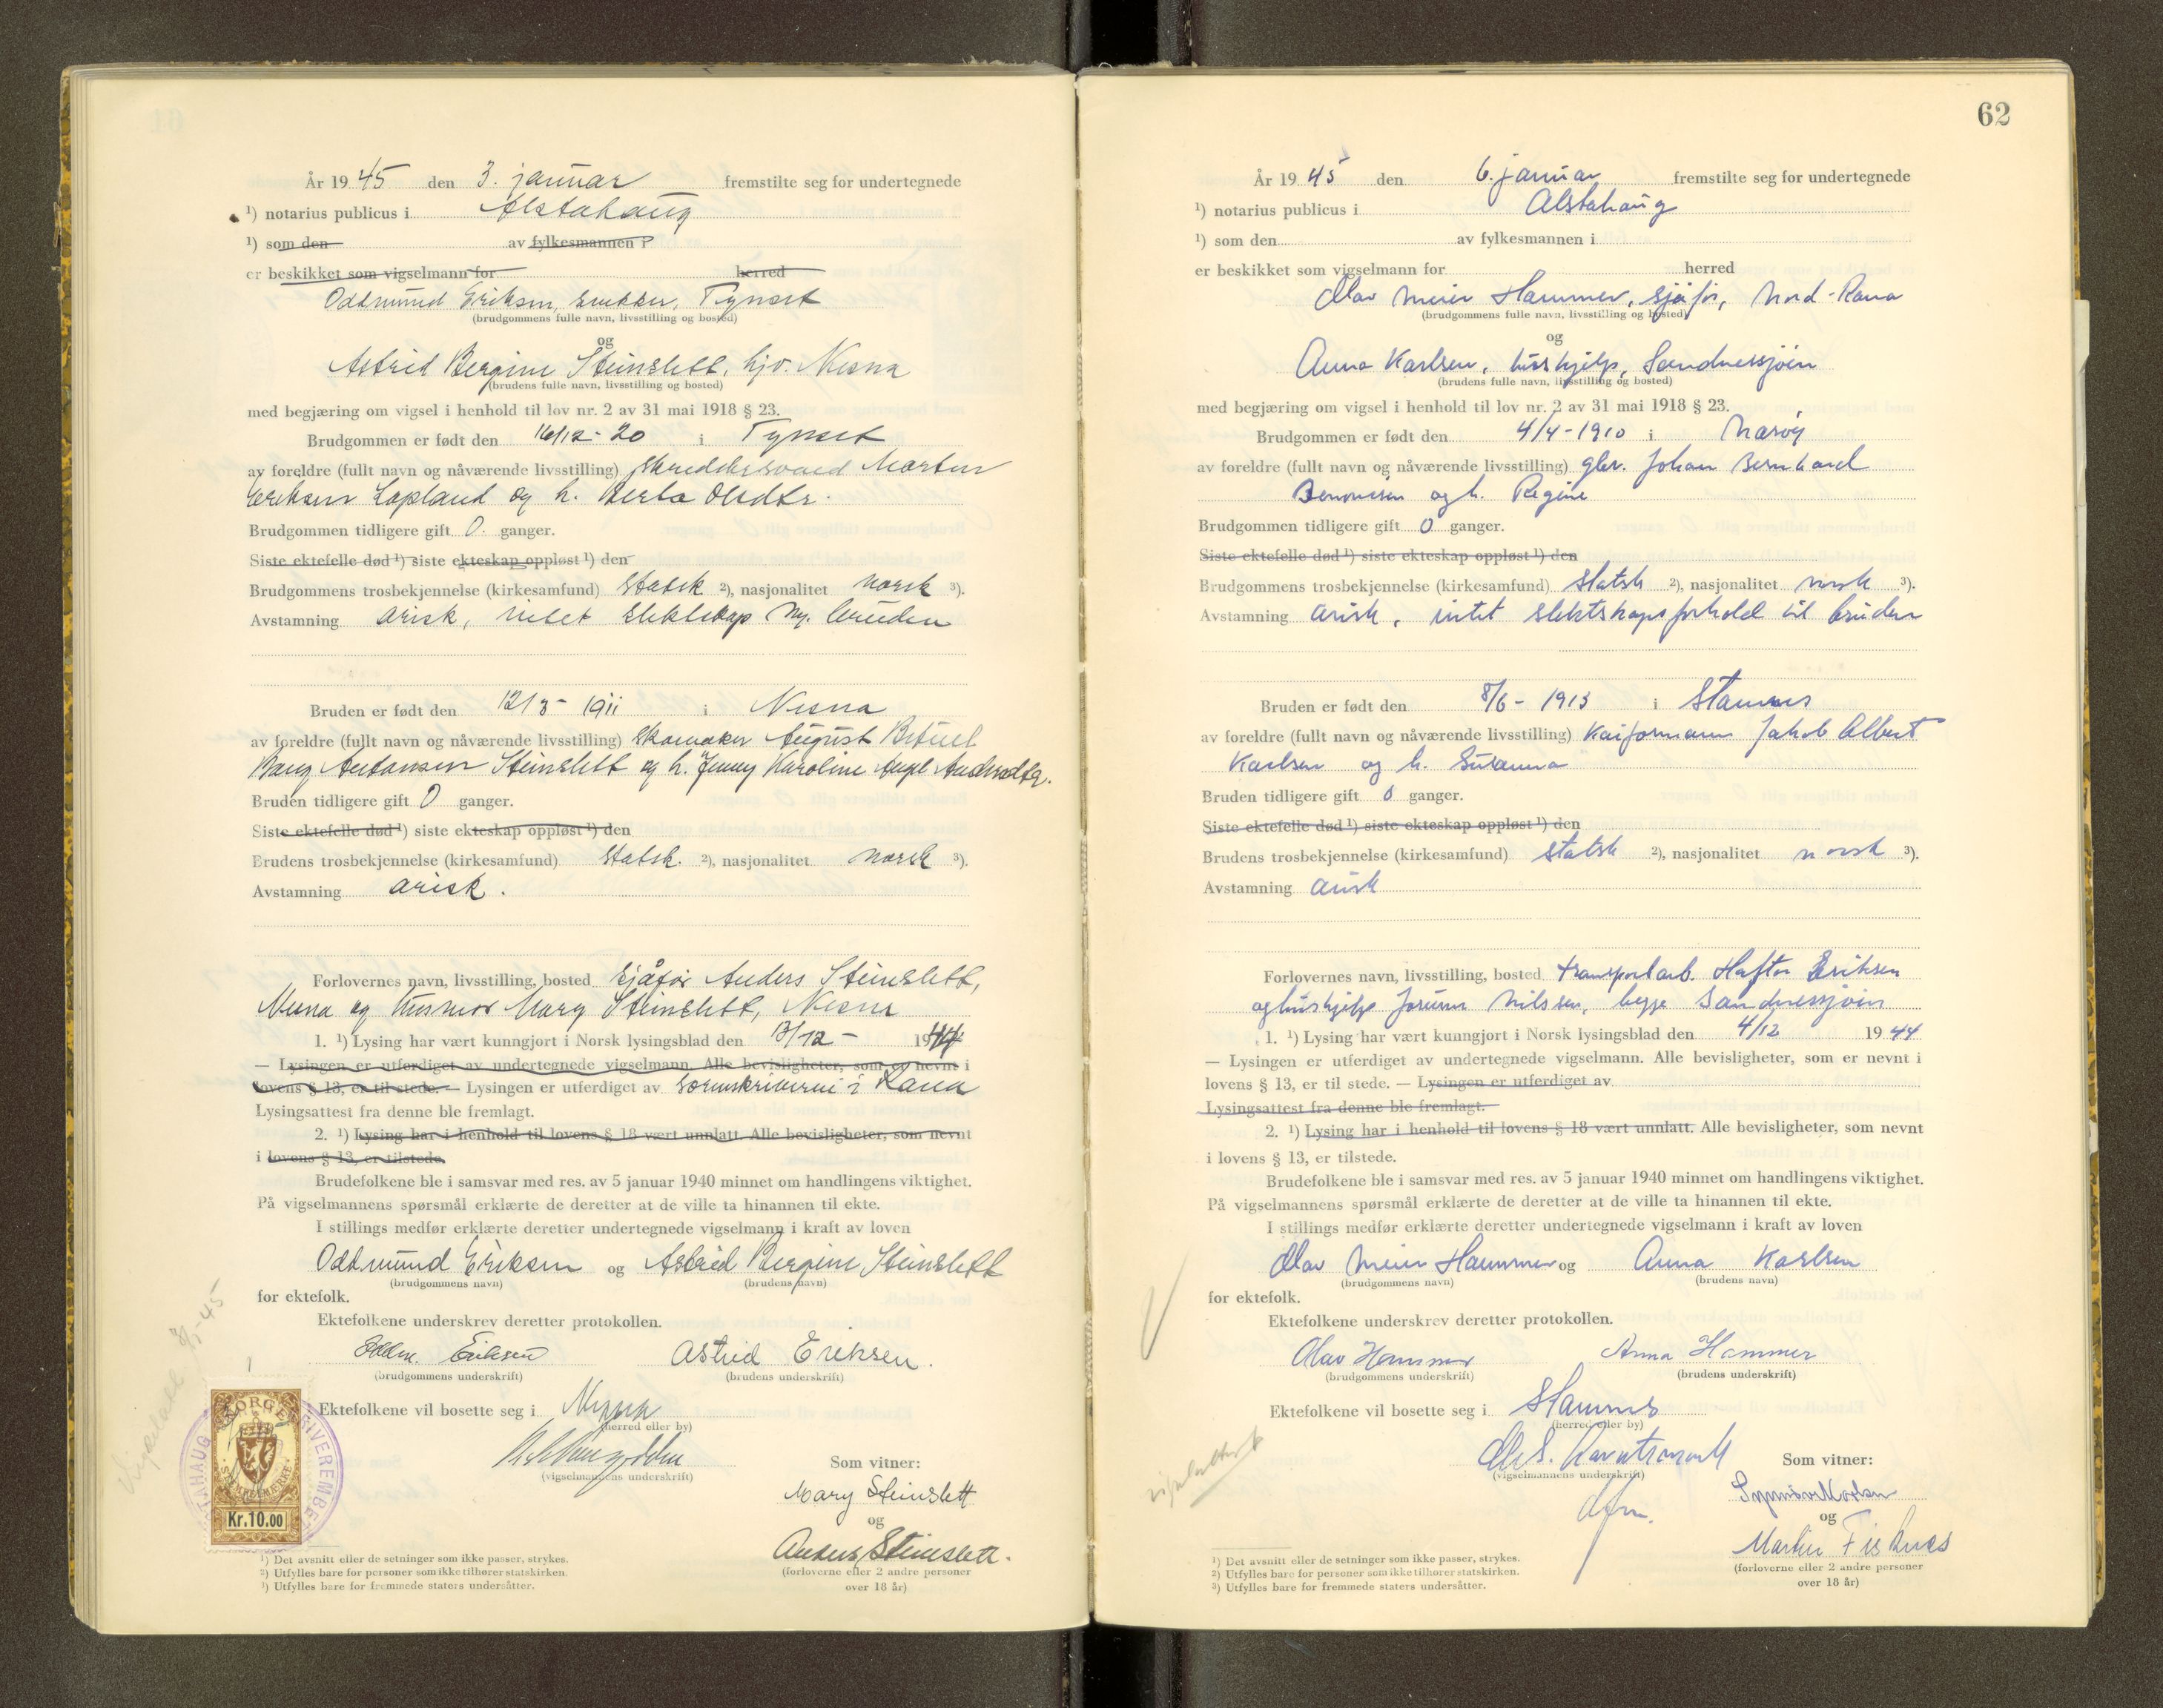 År 1945 den 3. januar fremstilte seg for undertegnede
¹) notarius publicus i Alstahaug
¹) som den av fylkesmannen i
er beskikket som vigselmann for herred
Oddmund Eriksen, snekker, Tynset
(brudgommens fulle navn, livsstilling og bosted)
og
Astrid Bergine Steinslett, hjv. Nesna
(brudens fulle navn, livsstilling og bosted)
med begjæring om vigsel i henhold til lov nr. 2 av 31 mai 1918 § 23.
Brudgommen er født den 16/12-20 i Tynset
av foreldre (fullt navn og nåværende livsstilling) skreddersvend Morten
Eriksen Lopland og h. Berta Olsdtr.
Brudgommen tidligere gift 0. ganger.
Siste ektefelle død ¹) siste ekteskap oppløst ¹) den
Brudgommens trosbekjennelse (kirkesamfund) statsk ²), nasjonalitet norsk ³).
Avstamning arisk, intet slektskap m. bruden
Bruden er født den 12/3-1911 i Nesna
av foreldre (fullt navn og nåværende livsstilling) skomaker August Betuel
Bang Antonsen Steinslett og h. Jenny Karoline
Bruden tidligere gift 0 ganger.
Siste ektefelle død ¹) siste ekteskap oppløst ¹) den
Brudens trosbekjennelse (kirkesamfund) statsk. ²), nasjonalitet norsk ³).
Avstamning arisk.
Forlovernes navn, livsstilling, bosted sjåfør Anders Steinslett,
Nesna og husmor Mary Steinslett, Nesna
1. ¹) Lysing har vært kunngjort i Norsk lysingsblad den /12- 1944
— Lysingen er utferdiget av undertegnede vigselmann. Alle bevisligheter, som er nevnt i
lovens § 13, er til stede. — Lysingen er utferdiget av sorenskriveren i Rana
Lysingsattest fra denne ble fremlagt.
2. ¹) Lysing har i henhold til lovens § 18 vært unnlatt. Alle bevisligheter, som nevnt
i lovens § 13, er tilstede.
Brudefolkene ble i samsvar med res. av 5 januar 1940 minnet om handlingens viktighet.
På vigselmannens spørsmål erklærte de deretter at de ville ta hinannen til ekte.
I stillings medfør erklærte deretter undertegnede vigselmann i kraft av loven
Oddmund Eriksen og Astrid Bergine Steinslett
(brudgommens navn) (brudens navn)
for ektefolk.
Ektefolkene underskrev deretter protokollen.
Oddm. Eriksen Astrid Eriksen.
(brudgommens underskrift) (brudens underskrift)
Ektefolkene vil bosette seg i
(herred eller by)
(vigselmannens underskrift)
Som vitner:
Mary Steinslett
og
Anders Steinslett.
(forloverne eller 2 andre personer
over 18 år)
NORGE
STEMPELMERKE
Kr.10.00
¹) Det avsnitt eller de setninger som ikke passer, strykes.
²) Utfylles bare for personer som ikke tilhører statskirken.
³) Utfylles bare for fremmede staters undersåtter.
62
År 1945 den 6. januar fremstilte seg for undertegnede
¹) notarius publicus i Alstahaug
¹) som den av fylkesmannen i
er beskikket som vigselmann for herred
Olav Meier Hammer, sjåfør, Nord-Rana
(brudgommens fulle navn, livsstilling og bosted)
og
Anna Karlsen, hushjelp, Sandnessjøen
(brudens fulle navn, livsstilling og bosted)
med begjæring om vigsel i henhold til lov nr. 2 av 31 mai 1918 § 23.
Brudgommen er født den 4/4-1910 i Nærøy
av foreldre (fullt navn og nåværende livsstilling) gbr. Johan Bernhard
og h. Regine
Brudgommen tidligere gift 0 ganger.
Siste ektefelle død ¹) siste ekteskap oppløst ¹) den
Brudgommens trosbekjennelse (kirkesamfund) statsk ²), nasjonalitet norsk ³).
Avstamning arisk, intet slektskapsforhold til bruden
Bruden er født den 8/6-1913 i Stamnes
av foreldre (fullt navn og nåværende livsstilling) kaiformann Jakob Albert
Karlsen og h. Susanna
Bruden tidligere gift 0 ganger.
Siste ektefelle død ¹) siste ekteskap oppløst ¹) den
Brudens trosbekjennelse (kirkesamfund) statsk ²), nasjonalitet norsk ³).
Avstamning arisk
Forlovernes navn, livsstilling, bosted transportarb. Haftor Eriksen
og hushjelp Jorunn Nilssen, begge Sandnessjøen
1. ¹) Lysing har vært kunngjort i Norsk lysingsblad den 4/12 1944
— Lysingen er utferdiget av undertegnede vigselmann. Alle bevisligheter, som er nevnt i
lovens § 13, er til stede. — Lysingen er utferdiget av
Lysingsattest fra denne ble fremlagt.
2. ¹) Lysing har i henhold til lovens § 18 vært unnlatt. Alle bevisligheter, som nevnt
i lovens § 13, er tilstede.
Brudefolkene ble i samsvar med res. av 5 januar 1940 minnet om handlingens viktighet.
På vigselmannens spørsmål erklærte de deretter at de ville ta hinannen til ekte.
I stillings medfør erklærte deretter undertegnede vigselmann i kraft av loven
Olav Meier Hammer og Anna Karlsen
(brudgommens navn) (brudens navn)
for ektefolk.
Ektefolkene underskrev deretter protokollen.
Olav Hammer Anna Hammer
(brudgommens underskrift) (brudens underskrift)
Ektefolkene vil bosette seg i Stamnes
(herred eller by)
(vigselmannens underskrift)
Som vitner:
og
Martin Fisknes
(forloverne eller 2 andre personer
over 18 år)
¹) Det avsnitt eller de setninger som ikke passer, strykes.
²) Utfylles bare for personer som ikke tilhører statskirken.
³) Utfylles bare for fremmede staters undersåtter.